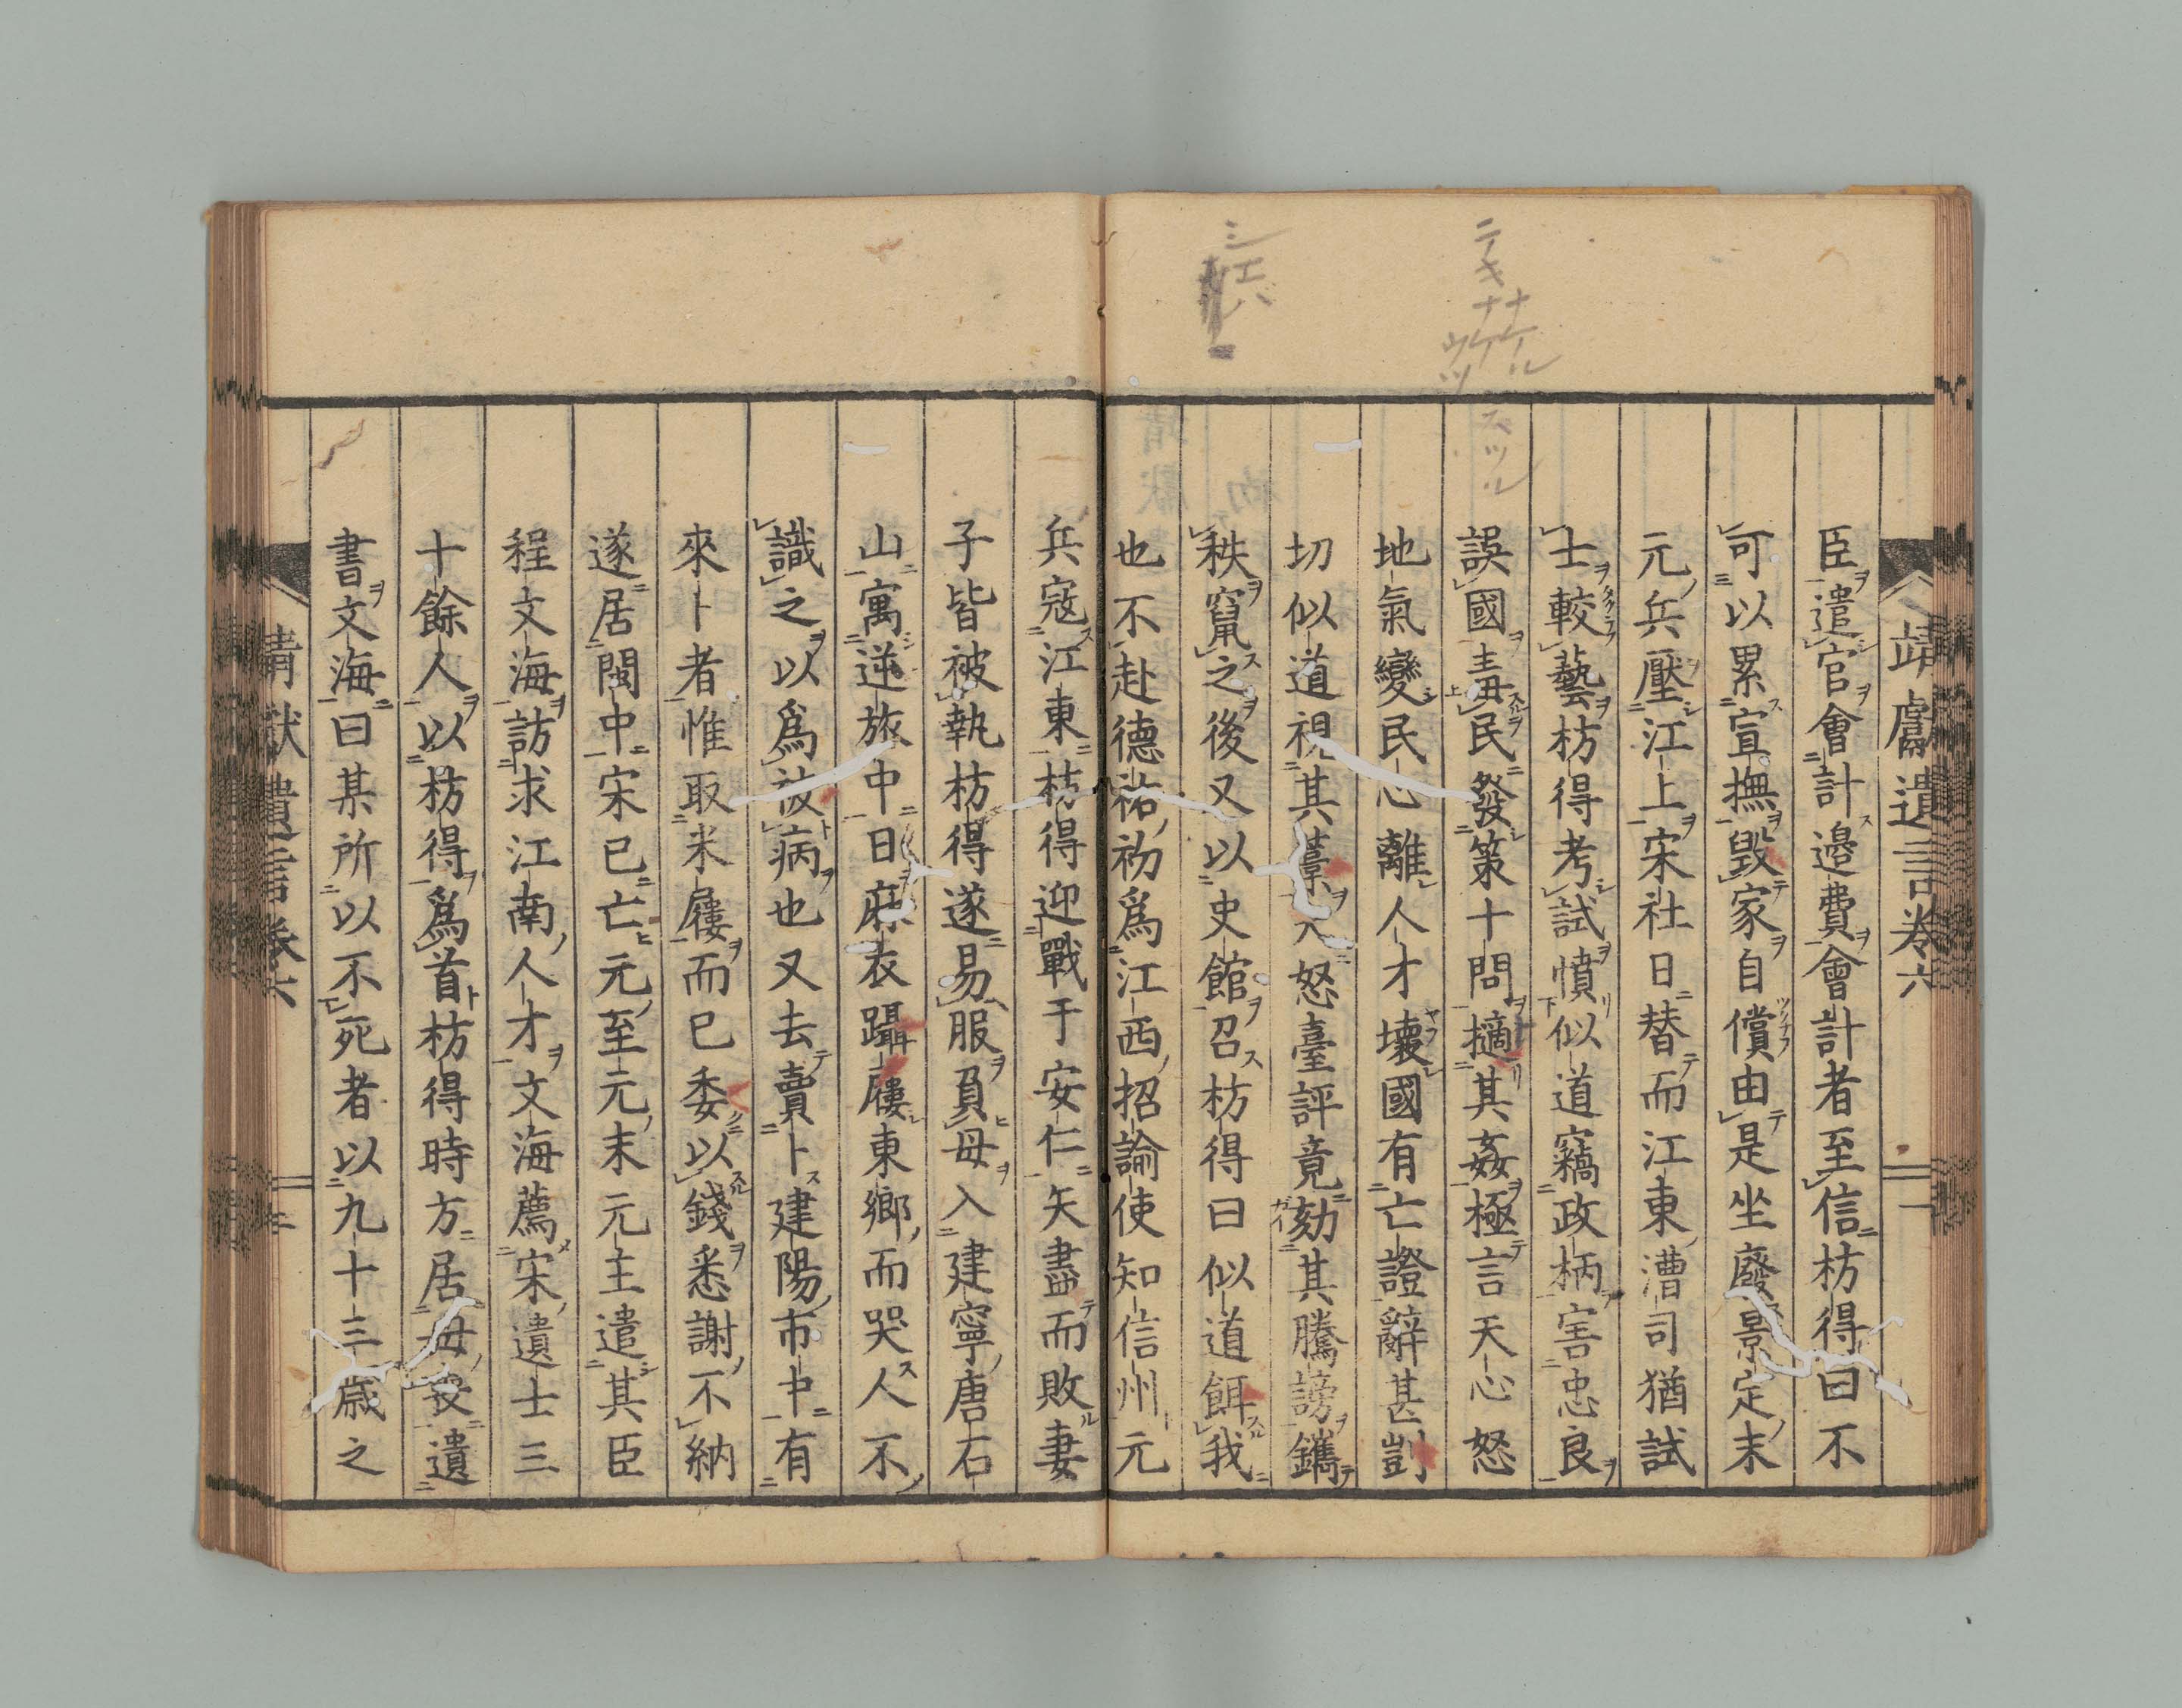 靖獻遺言卷六
一
臣遣官會計邉費會計者至信枋得曰不
可以累宣撫毀家自償由是坐廢景定末
元兵壓江上宋社日替而江東漕司猶試
士較藝枋得考試憤似道竊政柄害忠良
誤國毒民發策十問擿其姦極言天心怒
地氣變民心離人才壞國有亡證辭甚剴
切似道視其藁大怒臺評竟劾其騰謗鐫
秩竄之後又以史館召枋得曰似道餌我
也不赴德祐初爲江西招諭使知信州元
兵寇江東枋得迎戰于安仁矢盡而敗妻
子皆被執枋得遂易服負母入建寧唐石
山寓逆旅中日麻衣躡屨東鄉而哭人不
識之以爲被病也又去賣卜建陽市中有
來卜者惟取米屨而已委以錢悉謝不納
遂居閩中宋已亡元至元末元主遣其臣
程文海訪求江南人才文海薦宋遺士三
十餘人以枋得爲首枋得時方居母喪遺
書文海曰某所以不死者以九十三歳之
靖獻遺言卷六
二